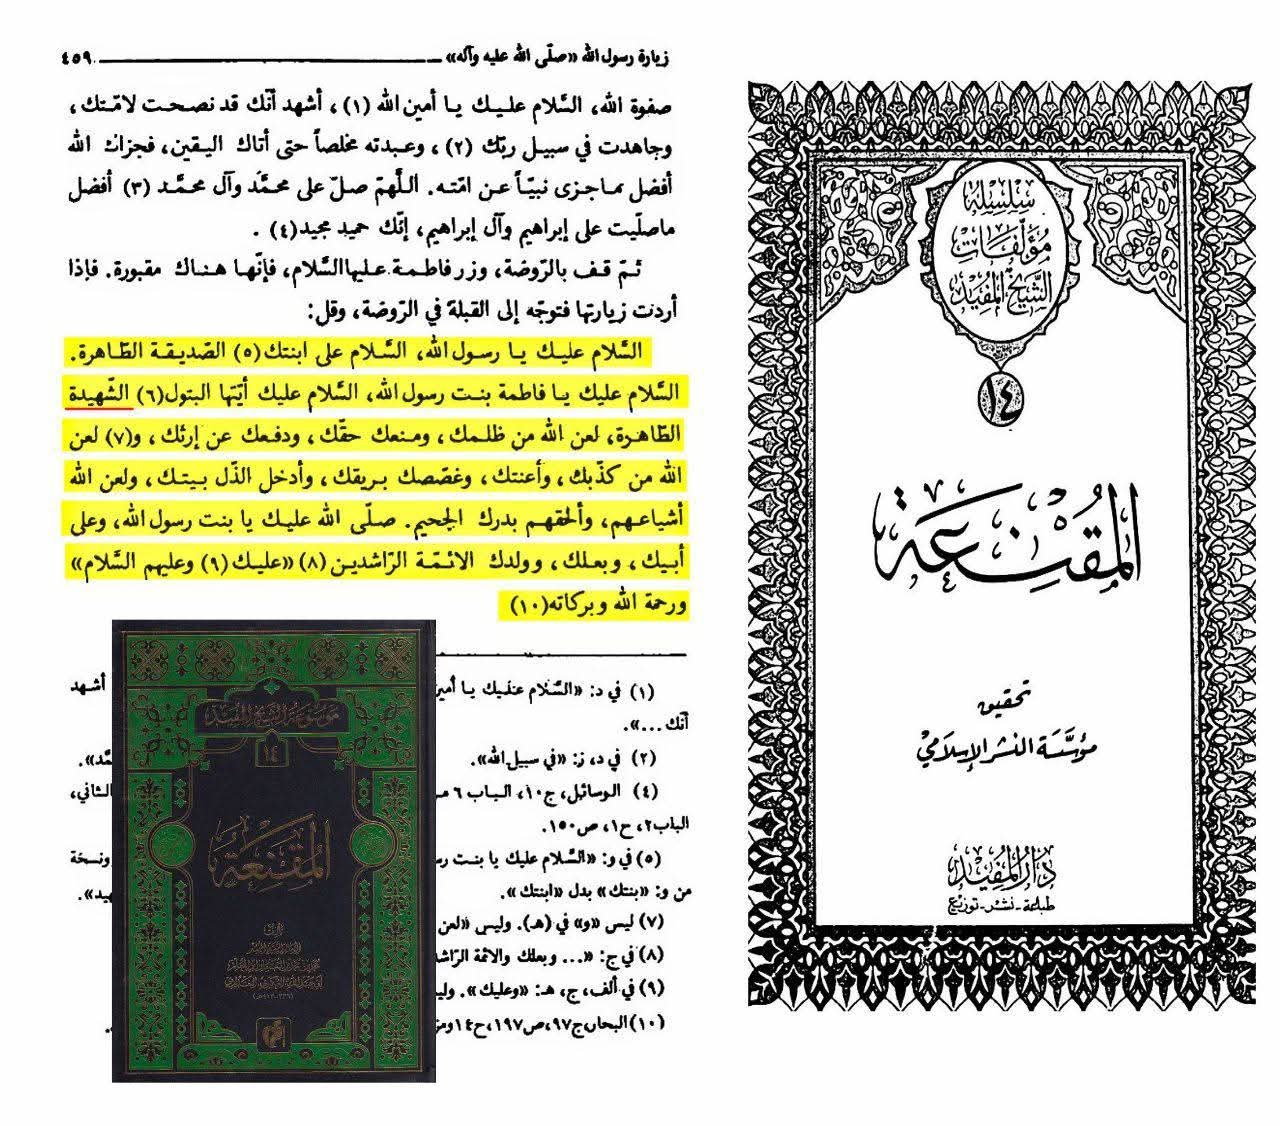 زيارة رسول الله «صلّى الله عليه وآله» ــــــــــ ٤٥٩
صفوة الله، السَّلام عليك يا أمين الله (١)، أشهد أنّك قد نصحت لامّتك،
وجاهدت في سبيل ربّك (٢)، وعبدته مخلصاً حتى أتاك اليقين، فجزاك الله
أفضل ماجزى نبيّاً عن امّته. اللَّهمّ صلّ على محمَّد وآل محمَّد (٣) أفضل
ماصلّيت على إبراهيم وآل إبراهيم، إنّك حميد مجيد(٤) .
ثمّ قف بالرّوضة، وزر فاطمة عليها السَّلام، فإنّها هناك مقبورة. فإذا
أردت زيارتها فتوجّه إلى القبلة في الرّوضة، وقل:
السَّلام عليك يا رسول الله، السَّلام على ابنتك(٥) الصّديقة الطّاهرة.
السَّلام عليك يا فاطمة بنت رسول الله، السَّلام عليك أيّتها البتول(٦) الشّهيدة
الطّاهرة، لعن الله من ظلمك، ومنعك حقّك، ودفعك عن إرثك، و(٧) لعن
الله من كذّبك، وأعنتك، وغصّصك بريقك، وأدخل الذّل بيتك، ولعن الله
أشياعهم، وألحقهم بدرك الجحيم. صلّى الله عليك يا بنت رسول الله، وعلى
أبيك، وبعلك، وولدك الائمّة الرّاشدين(٨) «عليك(٩) وعليهم السَّلام»
ورحمة الله وبركاته(١٠)
(١) في د: «السَّلام عليك يا أمين
أشهد
أنّك ...».
(٢) في د، ز: «في سبيل الله».
مَّد».
(٤) الوسائل، ج١٠، الباب ٦ من
الثاني،
الباب٢، ح١، ص١٥٠.
(٥) في و: «السَّلام عليك يا بنت رس
ونسخة
من و: «بنتك» بدل «ابنتك».
هيد».
(٧) ليس «و» في (هـ). وليس «لعن
(٨) في ج: «... وبعلك والائمة الرّاشد
(٩) في ألف، ج، هـ: «وعليك». وليـ
(١٠) البحار، ج٩٧، ص١٩٧، ح١٤ ومز
موسوعة الشيخ المفيد
١٤
المقنعة
سلسلة
مؤلّفات
الشيخ المفيد
١٤
المُقنِعَة
تحقيق
مؤسَّسة النشر الإسلامي
دار المفيد
طباعة - نشر - توزيع